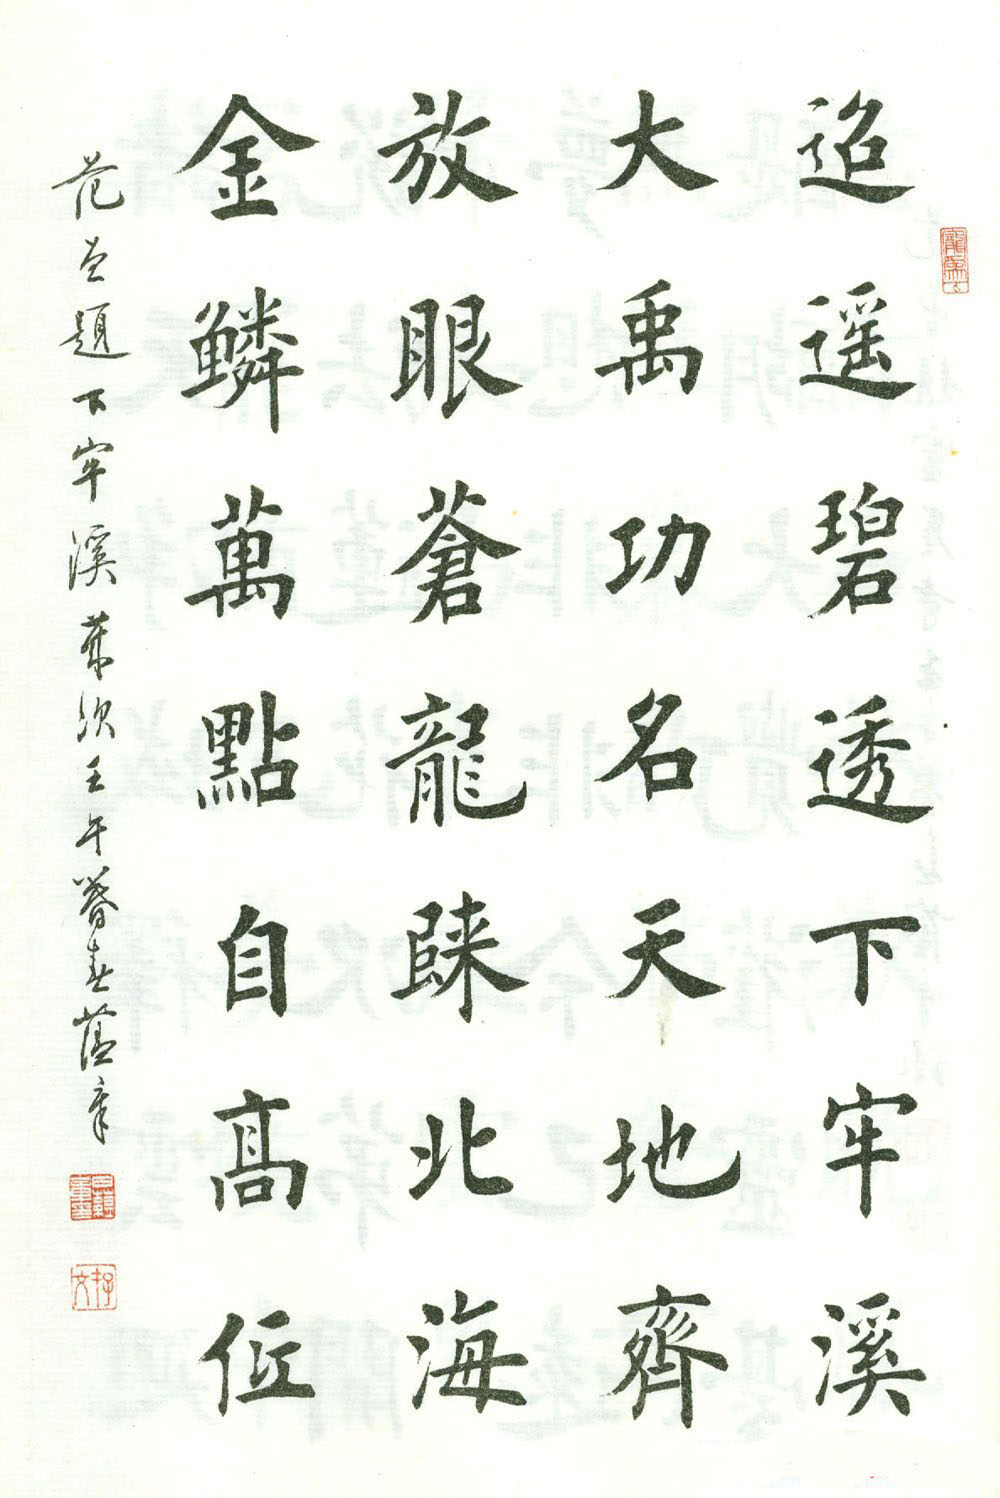 迢遥碧透下牢溪
大禹功名天地齊
放眼蒼龍睞北海
金鱗萬點自高低
題下牢溪壬午暮春